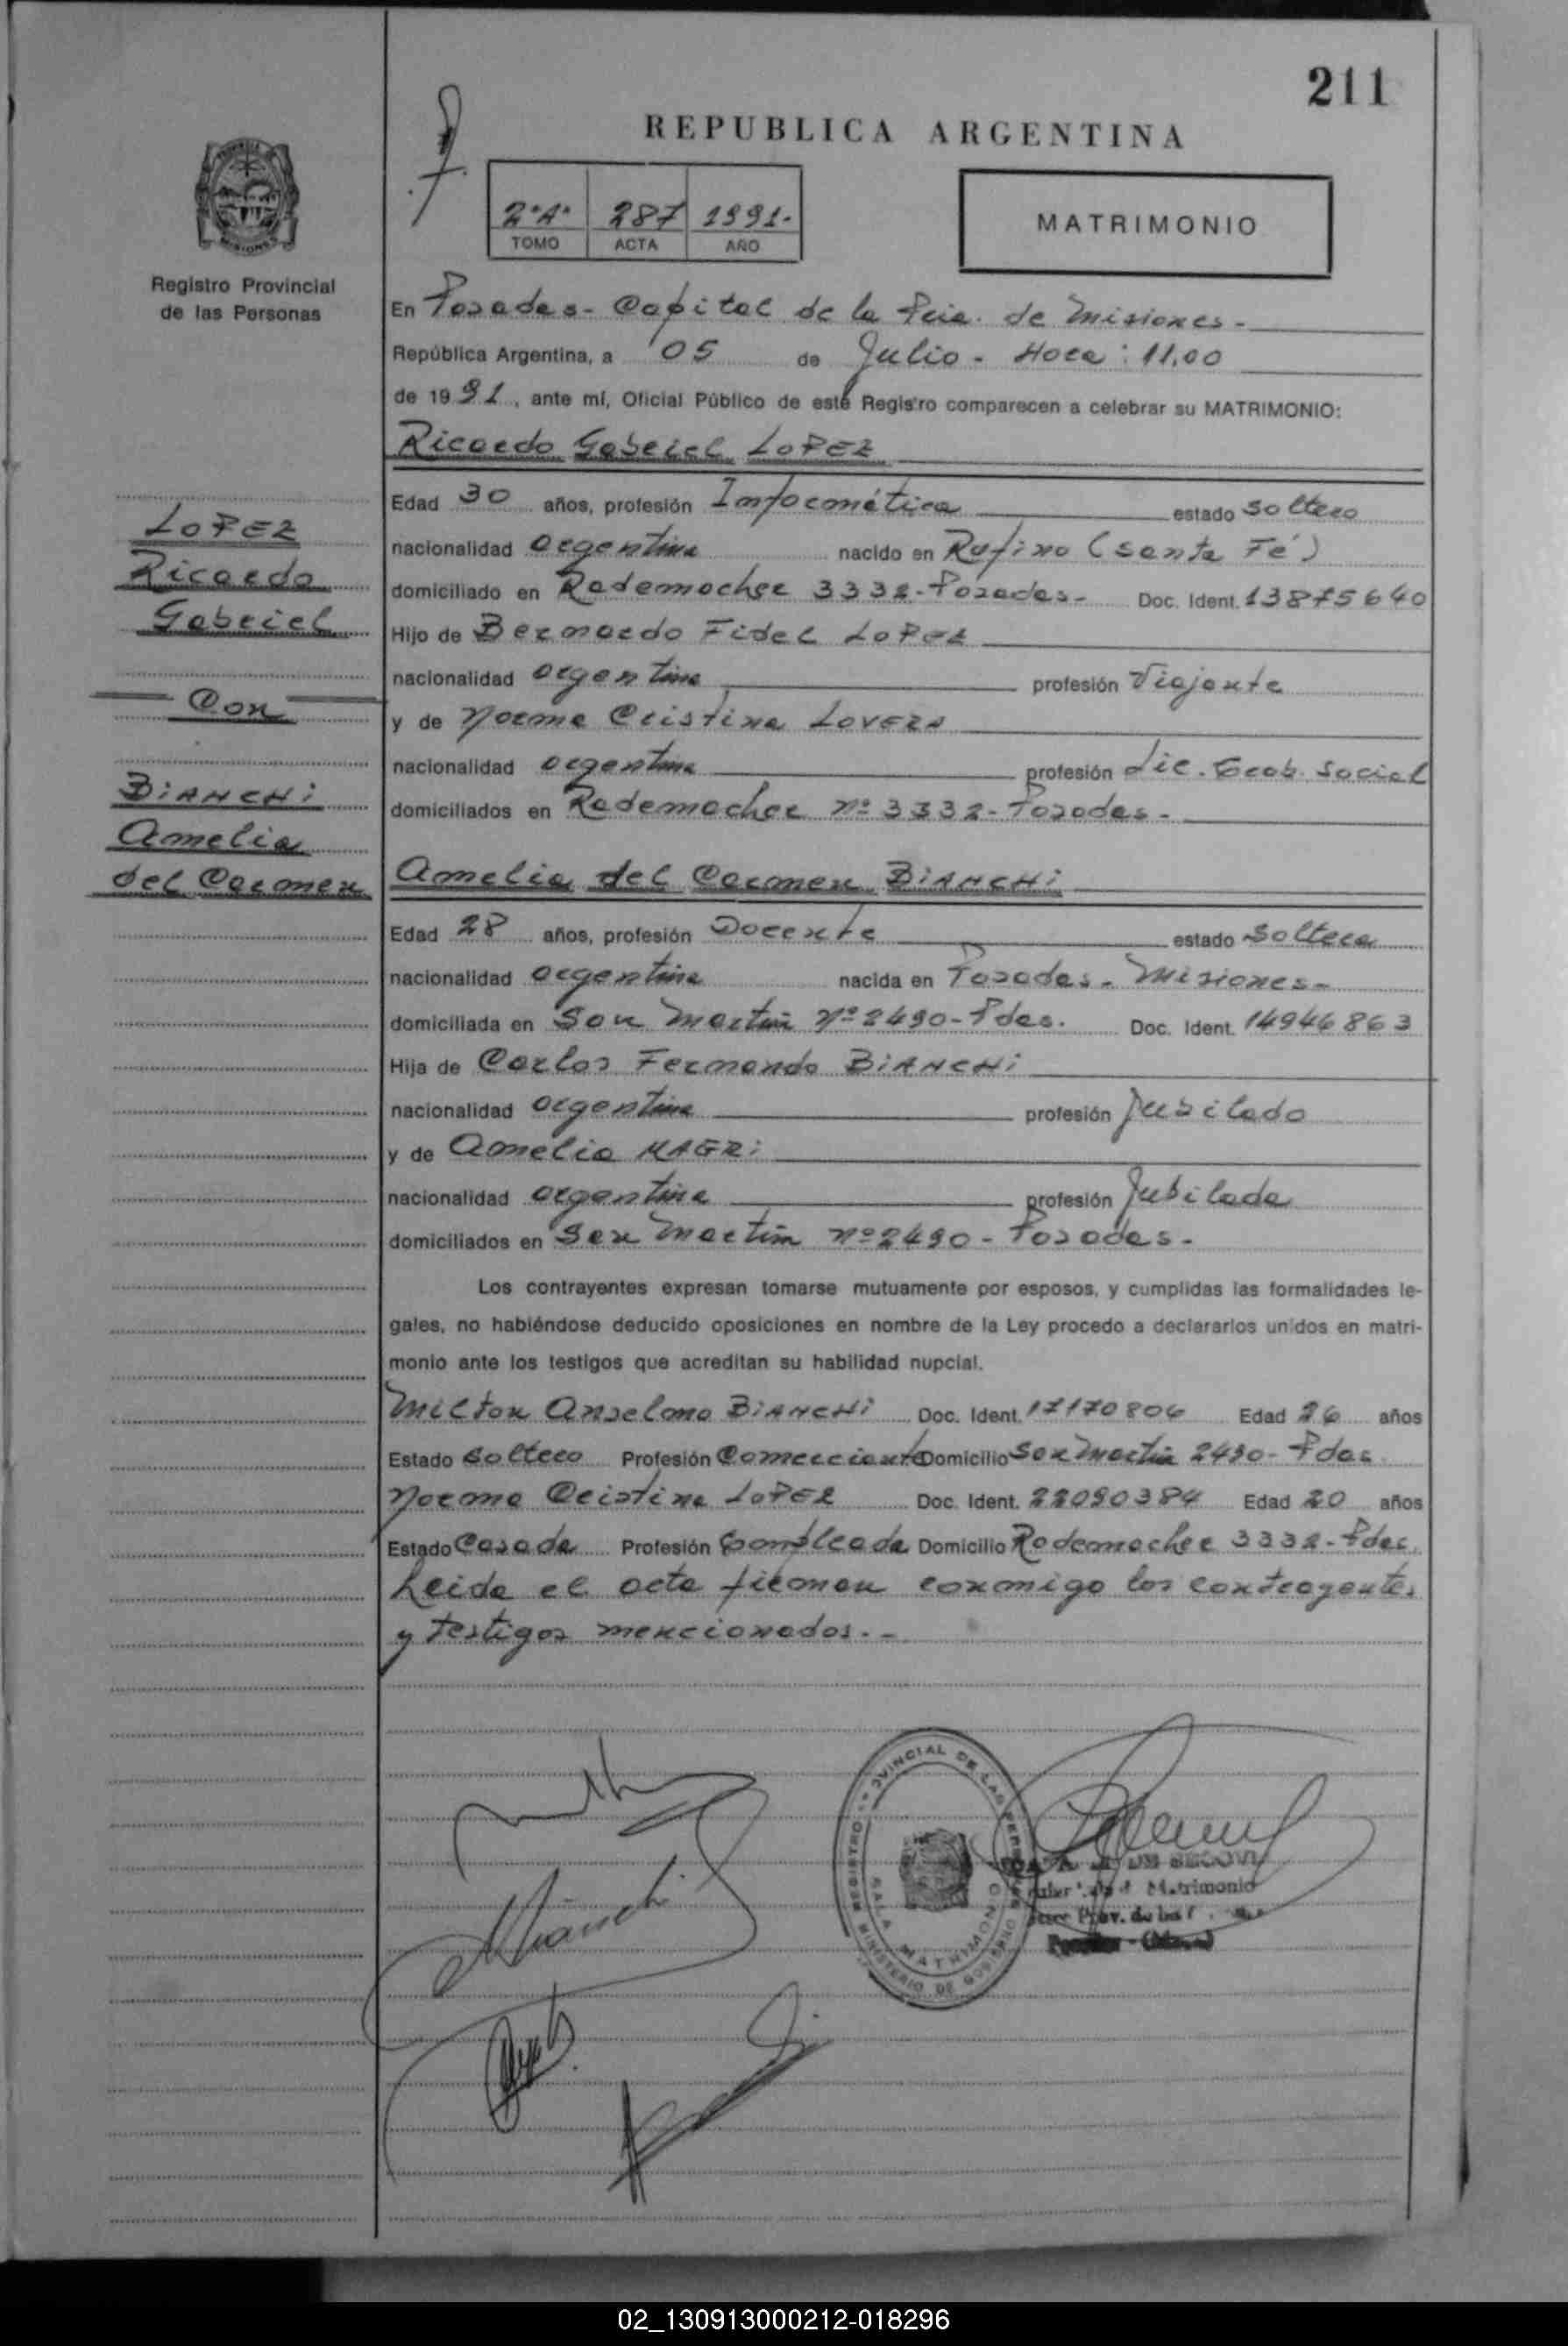 211
REPUBLICA ARGENTINA
2ºAº 287 1991-
TOMO ACTA AÑO
MATRIMONIO
Registro Provincial
de las Personas
En Posadas - Capital de la Pcia. de Misiones -
República Argentina, a 05 de Julio - Hora: 11.00
de 1991, ante mí, Oficial Público de este Registro comparecen a celebrar su MATRIMONIO:
Ricardo Gabriel LOPEZ
Edad 30 años, profesión Informática estado soltero
nacionalidad argentina nacido en Rufino (Santa Fé)
domiciliado en Rademacher 3332 - Posadas - Doc. Ident. 13875640
Hijo de Bernardo Fidel LOPEZ
nacionalidad argentina profesión Viajante
y de Norma Cristina LOVERA
nacionalidad argentina profesión Lic. Trab. Social
domiciliados en Rademacher nº 3332 - Posadas -
LOPEZ
Ricardo
Gabriel
Con
BIANCHI
Amelia
del Carmen
Amelia del Carmen BIANCHI
Edad 28 años, profesión Docente estado soltera
nacionalidad argentina nacida en Posadas - Misiones -
domiciliada en San Martín nº 2490 - Pdas. Doc. Ident. 14946863
Hija de Carlos Fernando BIANCHI
nacionalidad argentina profesión Jubilado
y de Amelia MAGRI
nacionalidad argentina profesión Jubilada
domiciliados en San Martín nº 2490 - Posadas -
Los contrayentes expresan tomarse mutuamente por esposos, y cumplidas las formalidades le-
gales, no habiéndose deducido oposiciones en nombre de la Ley procedo a declararlos unidos en matri-
monio ante los testigos que acreditan su habilidad nupcial.
Milton Anselmo BIANCHI Doc. Ident. 17170806 Edad 26 años
Estado soltero Profesión Comerciante Domicilio San Martín 2490 - Pdas
Norma Cristina LOPEZ Doc. Ident. 22090384 Edad 20 años
Estado Casada Profesión Empleada Domicilio Rademacher 3332 - Pdas.
Leida el acta firman conmigo los contrayentes
y testigos mencionados. -
REGISTRO PROVINCIAL DE LAS PERSONAS
SALA MATRIMONIO
MINISTERIO DE GOBIERNO
DE SEGOVIA
Matrimonio
Prov. de las
02_130913000212-018296